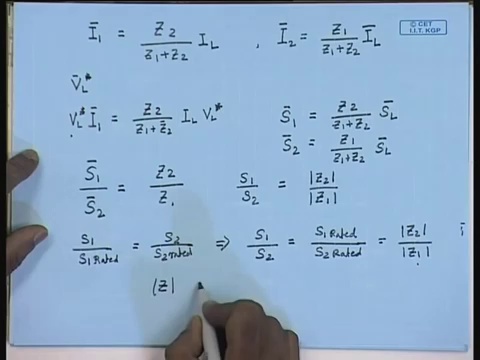 Ī₁ = Z₂/(Z₁+Z₂) I_L , Ī₂ = Z₁/(Z₁+Z₂) Ī_L
© CET I.I.T. KGP
V̄_L*
V_L* Ī₁ = Z₂/(Z₁+Z₂) I_L V_L*
S̄₁ = Z₂/(Z₁+Z₂) S̄_L
S̄₂ = Z₁/(Z₁+Z₂) S̄_L
S̄₁/S̄₂ = Z₂/Z₁ S₁/S₂ = |Z₂|/|Z₁|
S₁/S₁ Rated = S₂/S₂ rated ⇒ S₁/S₂ = S₁ Rated/S₂ Rated = |Z₂|/|Z₁|
|Z|